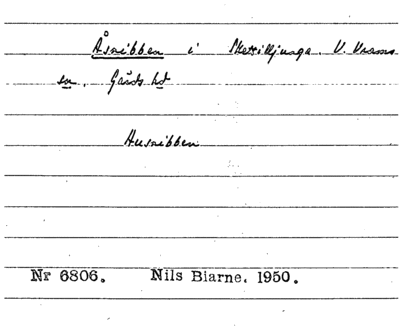 Åsribben i Skättilljunga. V. Vrams
sn. Gärds hd
Ausribben
Nr 6806. Nils Blarne. 1950.